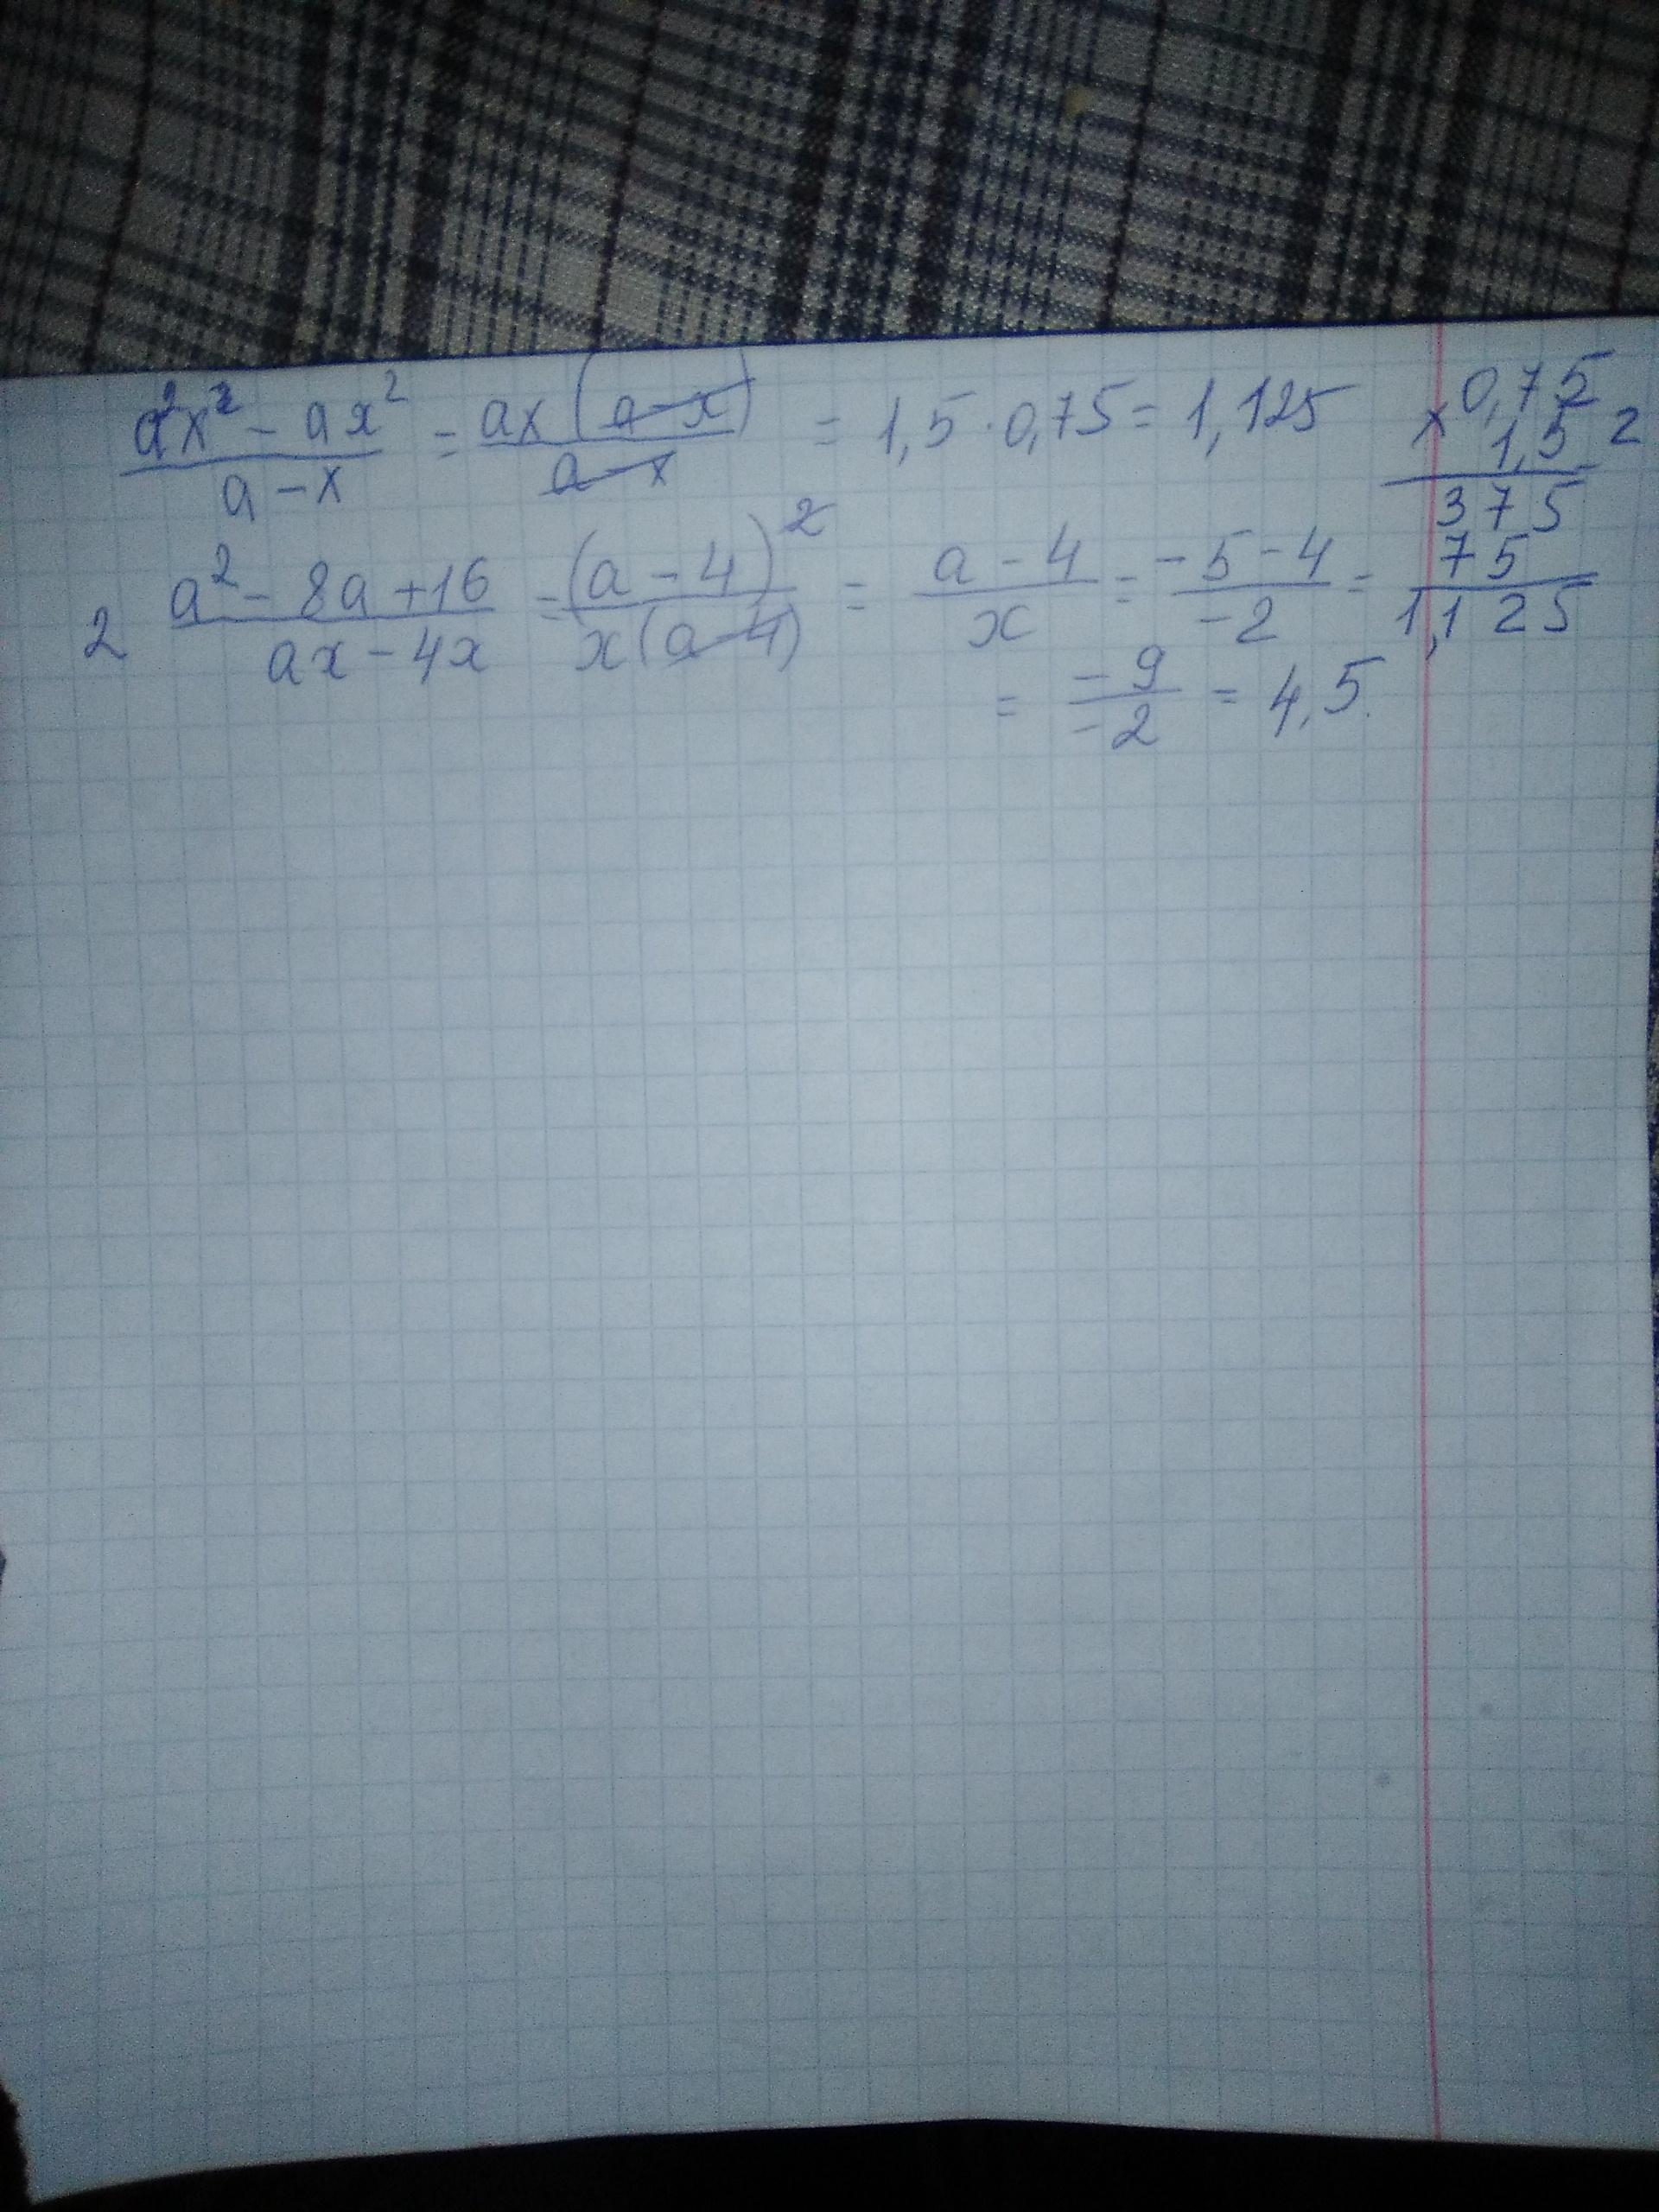 a²x² - ax² / a - x = ax(a - x) / a - x = 1,5 · 0,75 = 1,125
× 0,75
1,5 2
375
75
1,125
2 a² - 8a + 16 / ax - 4x = (a - 4)² / x(a - 4) = a - 4 / x = -5 - 4 / -2 =
= -9 / -2 = 4,5.